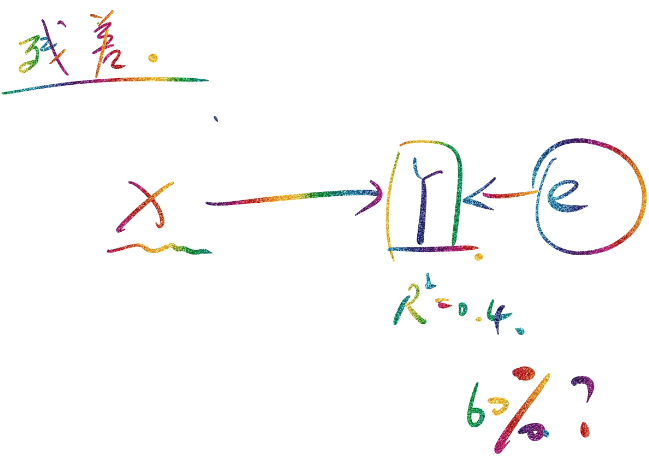 残差.
X Y e
R²=0.4.
60%?